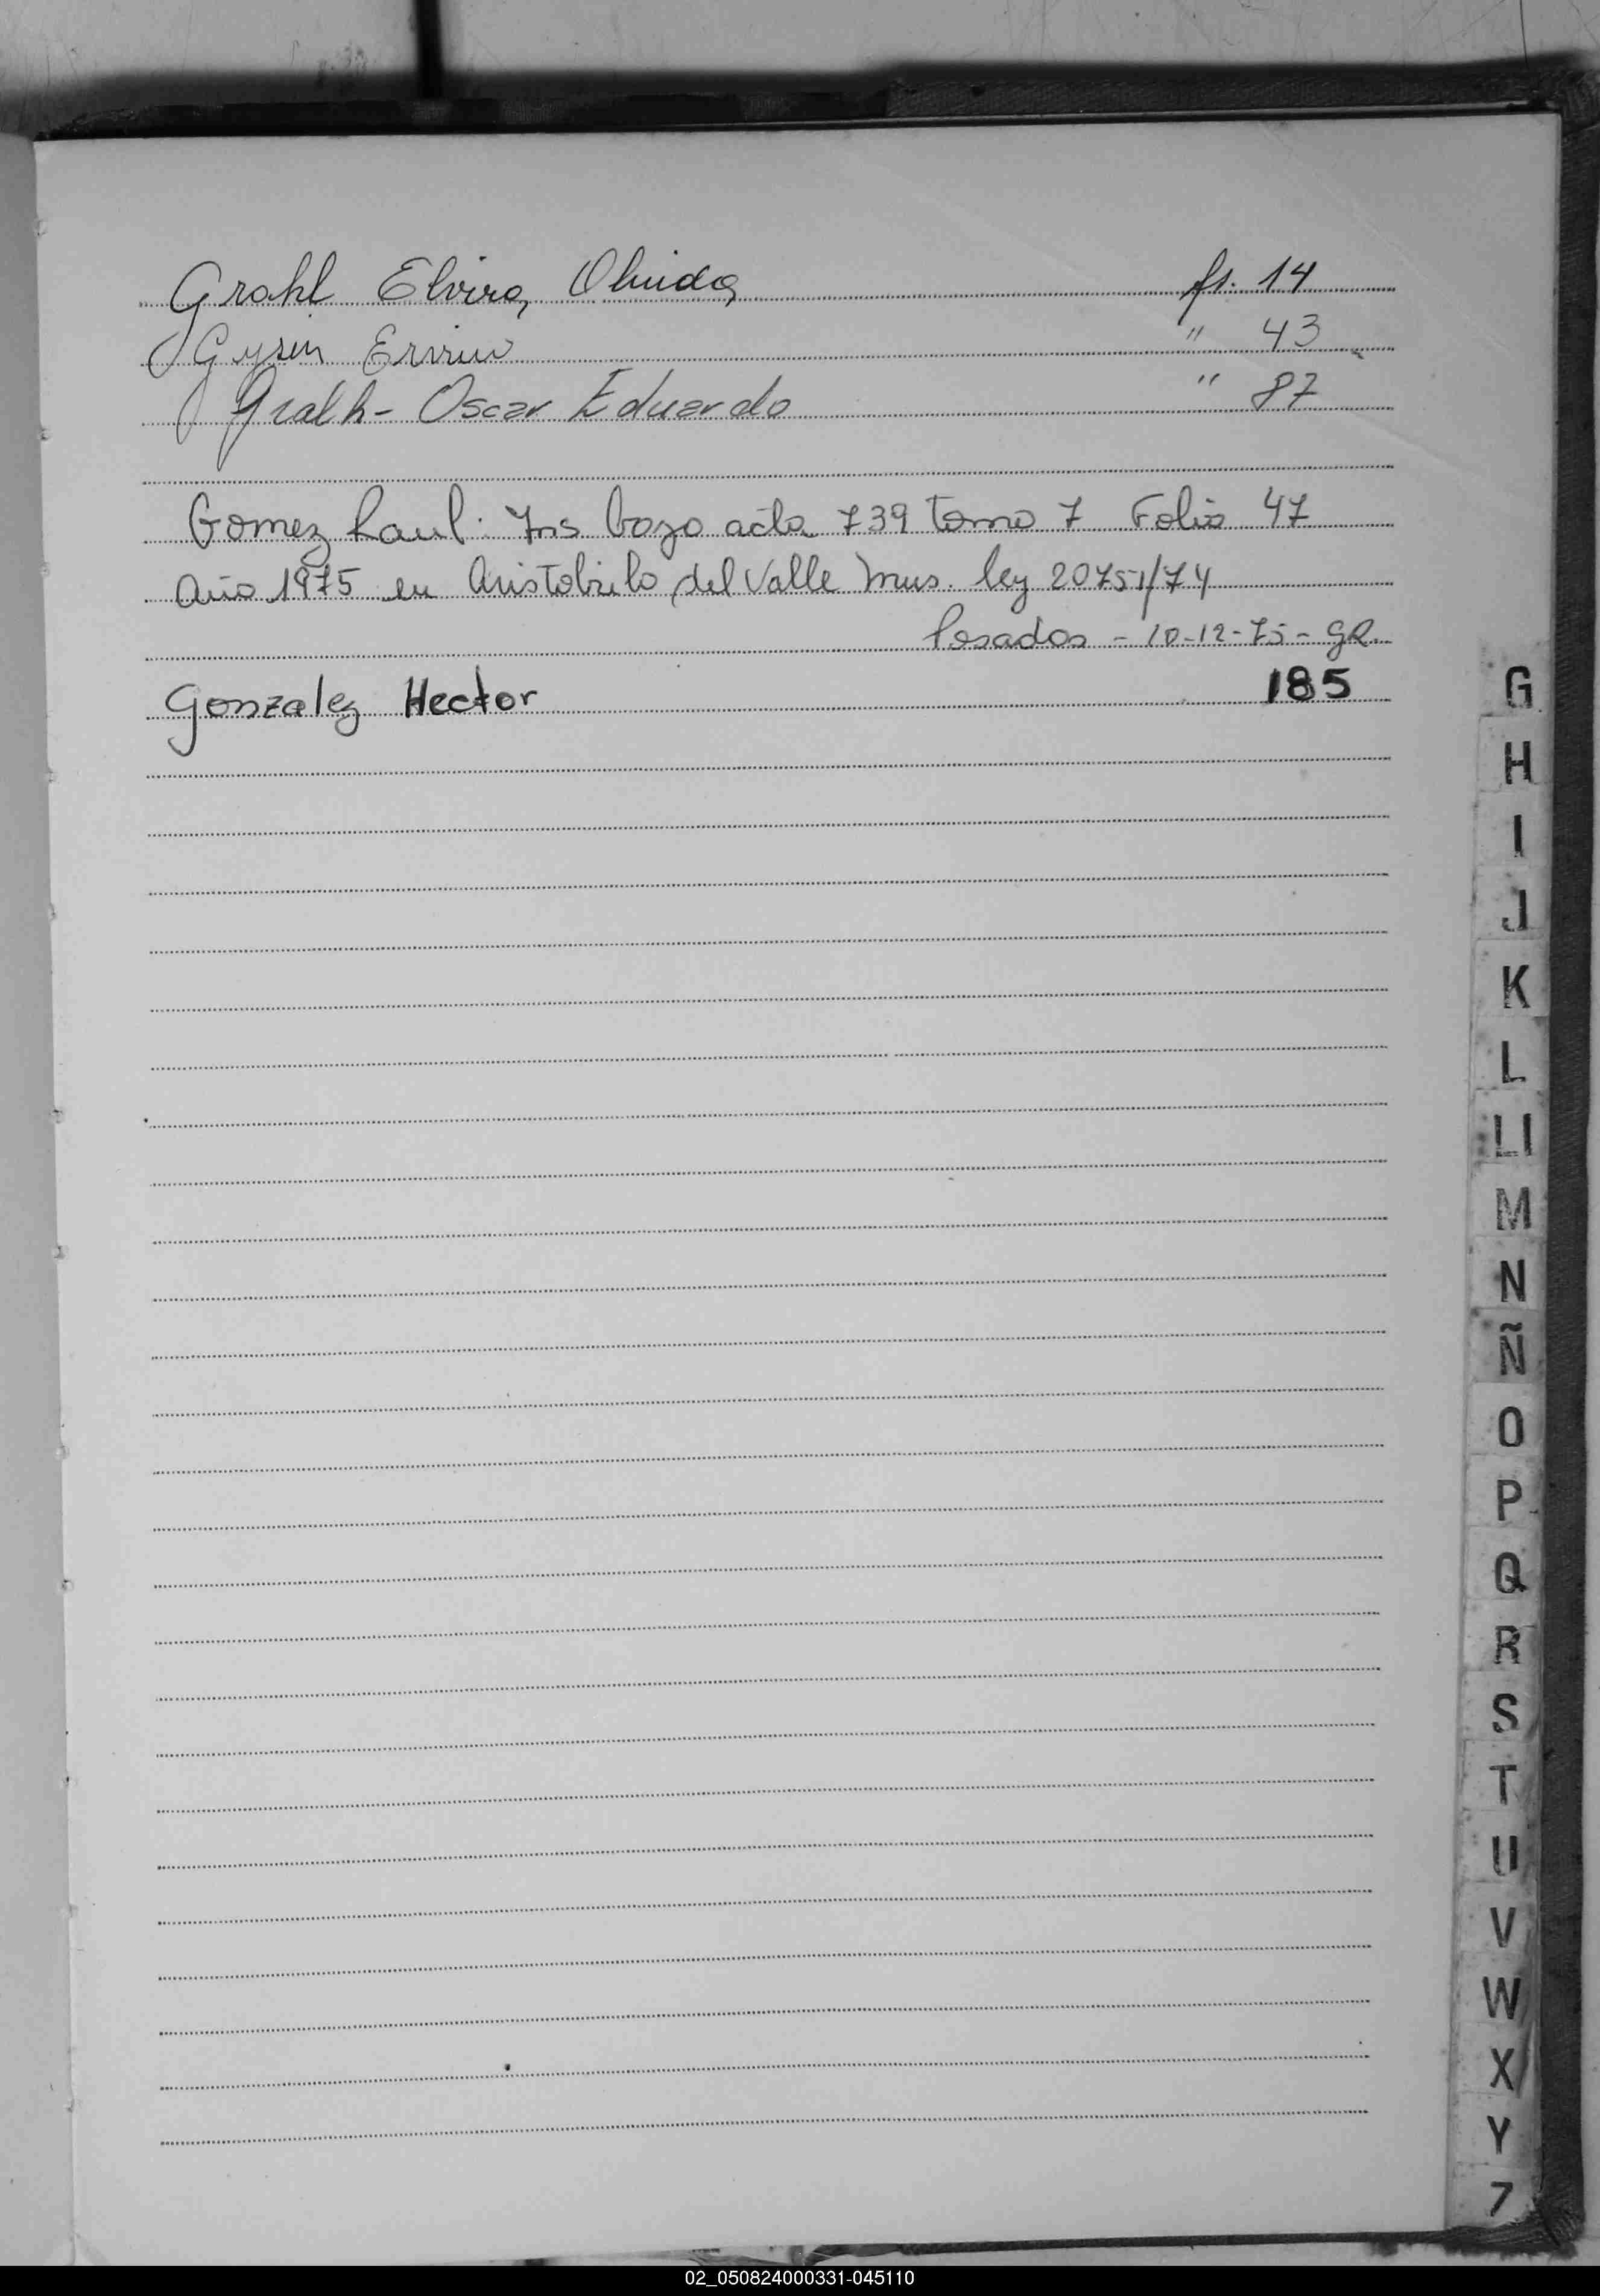 Grahl Elvira Olinda fs. 14
Gysin Erviw " 43
Gralh - Oscar Eduardo " 87
Gomez Raul: Ins bazo acta 739 tomo 7 Folio 47
Año 1975 en Aristobulo del Valle Mns. ley 20751/74
Posadas - 10-12-75 - GR.
Gonzalez Hector 185
G
H
I
J
K
L
Ll
M
N
Ñ
O
P
Q
R
S
T
U
V
W
X
Y
Z
02_050824000331-045110